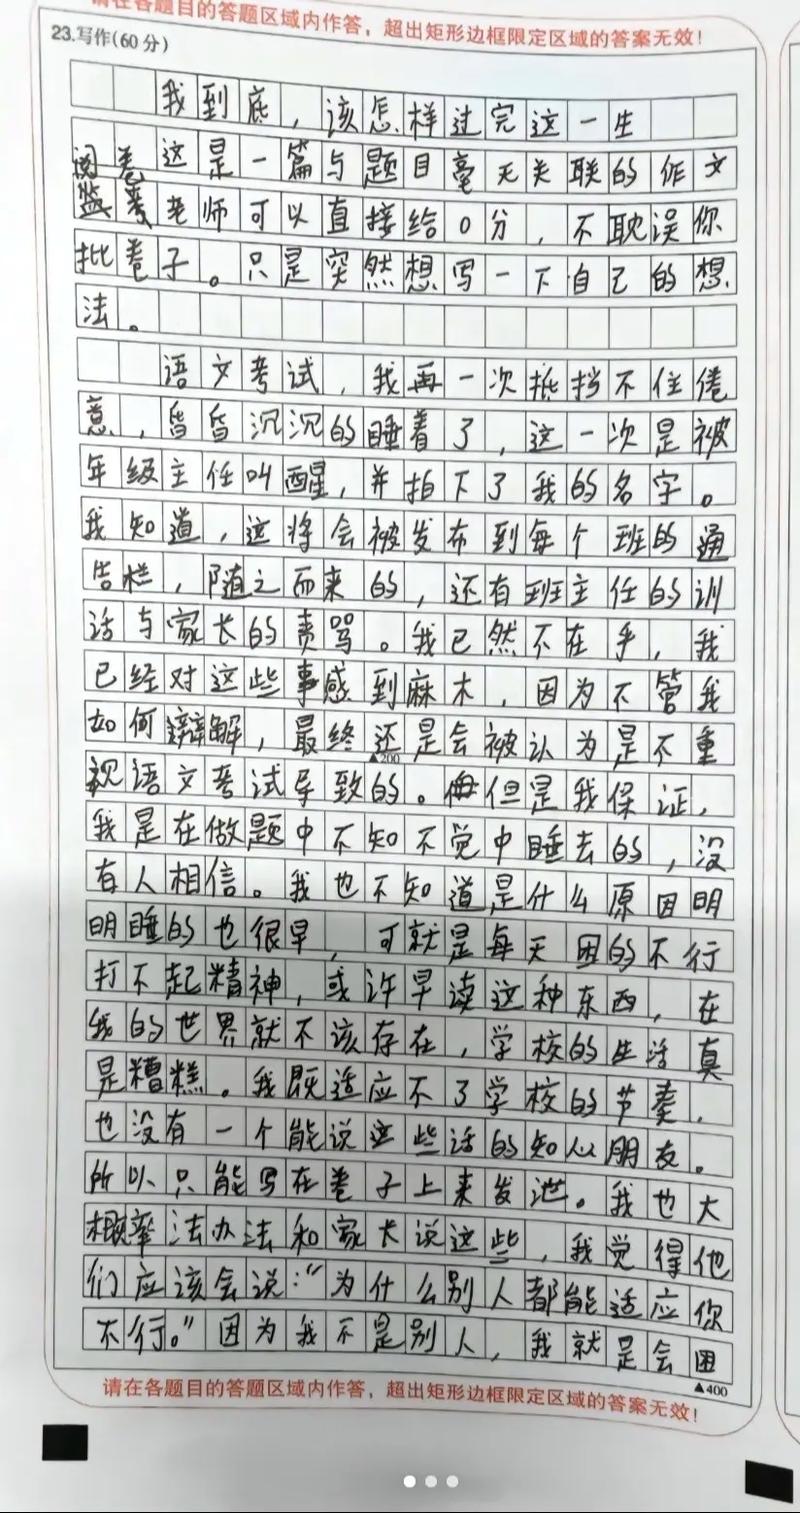 请在各题目的答题区域内作答，超出矩形边框限定区域的答案无效！
23.写作(60分)
我到底，该怎样过完这一生
阅卷这是一篇与题目毫无关联的作文
监考老师可以直接给0分，不耽误你
批卷子。只是突然想写一下自己的想
法。
语文考试，我再一次抵挡不住倦
意，昏昏沉沉的睡着了，这一次是被
年级主任叫醒，并拍下了我的名字。
我知道，这将会被发布到每个班的通
告栏，随之而来的，还有班主任的训
话与家长的责骂。我已然不在乎，我
已经对这些事感到麻木，因为不管我
如何辩解，最终还是会被认为是不重
▲200
视语文考试导致的。但是我保证，
我是在做题中不知不觉中睡去的，没
有人相信。我也不知道是什么原因明
明睡的也很早，可就是每天困的不行
打不起精神，或许早读这种东西，在
我的世界就不该存在，学校的生活真
是糟糕。我既适应不了学校的节奏，
也没有一个能说这些话的知心朋友。
所以只能写在卷子上来发泄。我也大
概率法办法和家长说这些，我觉得他
们应该会说："为什么别人都能适应你
不行。"因为我不是别人，我就是会困
▲400
请在各题目的答题区域内作答，超出矩形边框限定区域的答案无效！